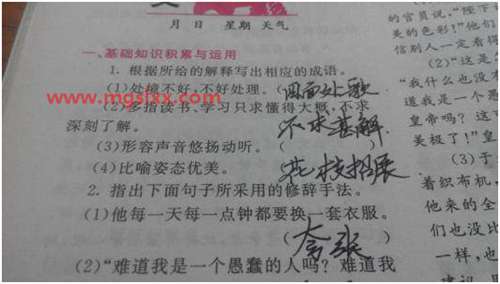 月 日 星期 天气
一、基础知识积累与运用
1. 根据所给的解释写出相应的成语。
(1)处境不好,不好处理。(
(2)多指读书、学习只求懂得大概,不求
深刻了解。 不求甚解
(3)形容声音悠扬动听。(
(4)比喻姿态优美。 花枝招展
2. 指出下面句子所采用的修辞手法。
(1)他每一天每一点钟都要换一套衣服。
(夸张
(2)“难道我是一个愚蠢的人吗?难道我
www.mgsfxx.com
的官员说,“陛下
美的色彩!”他们
信别人一定看得
(2)“这是
“我什么也没
道我是一个愚
皇帝吗?这
美极了!”皇
(3)于
着织布机,
他来的全
们也没比
一样,也